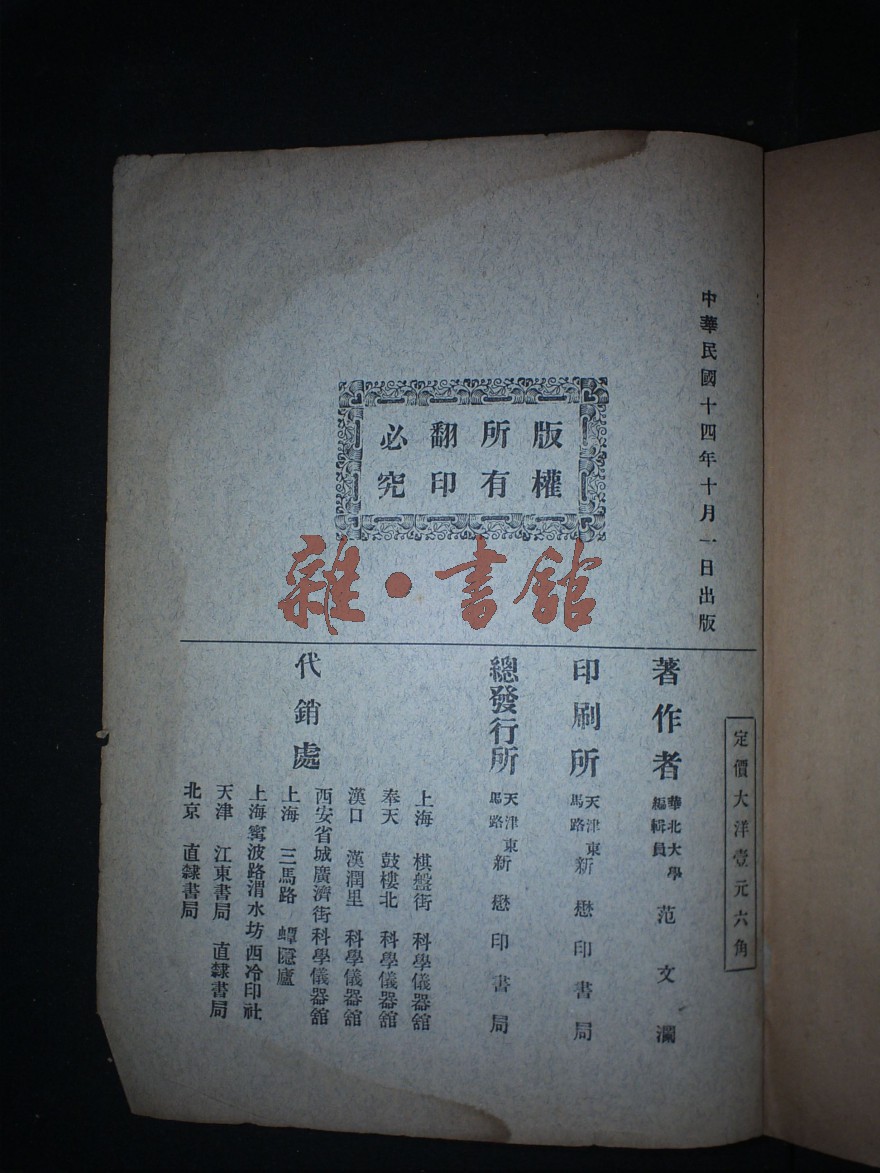 中華民國十四年十月一日出版
版權
所有
翻印
必究
雜•書館
定價大洋壹元六角
著作者 華北大學編輯員 范文瀾
印刷所 天津東馬路 新懋印書局
總發行所 天津東馬路 新懋印書局
代銷處
上海 棋盤街 科學儀器舘
奉天 鼓樓北 科學儀器舘
漢口 漢潤里 科學儀器舘
西安省城廣濟街科學儀器舘
上海 三馬路 蟫隱廬
上海寗波路渭水坊西冷印社
天津 江東書局 直隸書局
北京 直隸書局